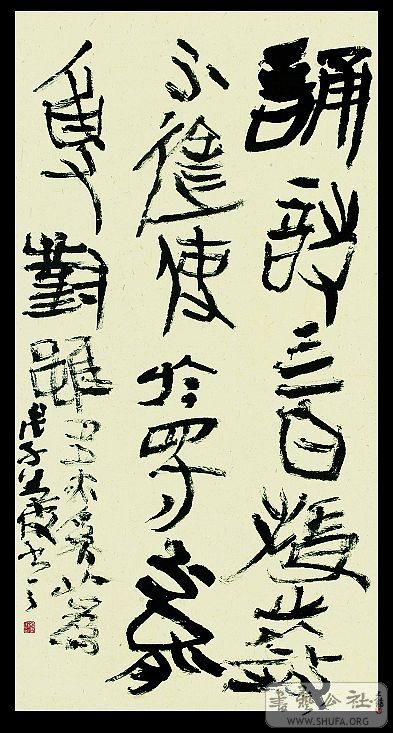 誦詩三百授之以政
不達使於四方不能
專對雖多亦奚以為
書藝公社
WWW.SHUFA.ORG